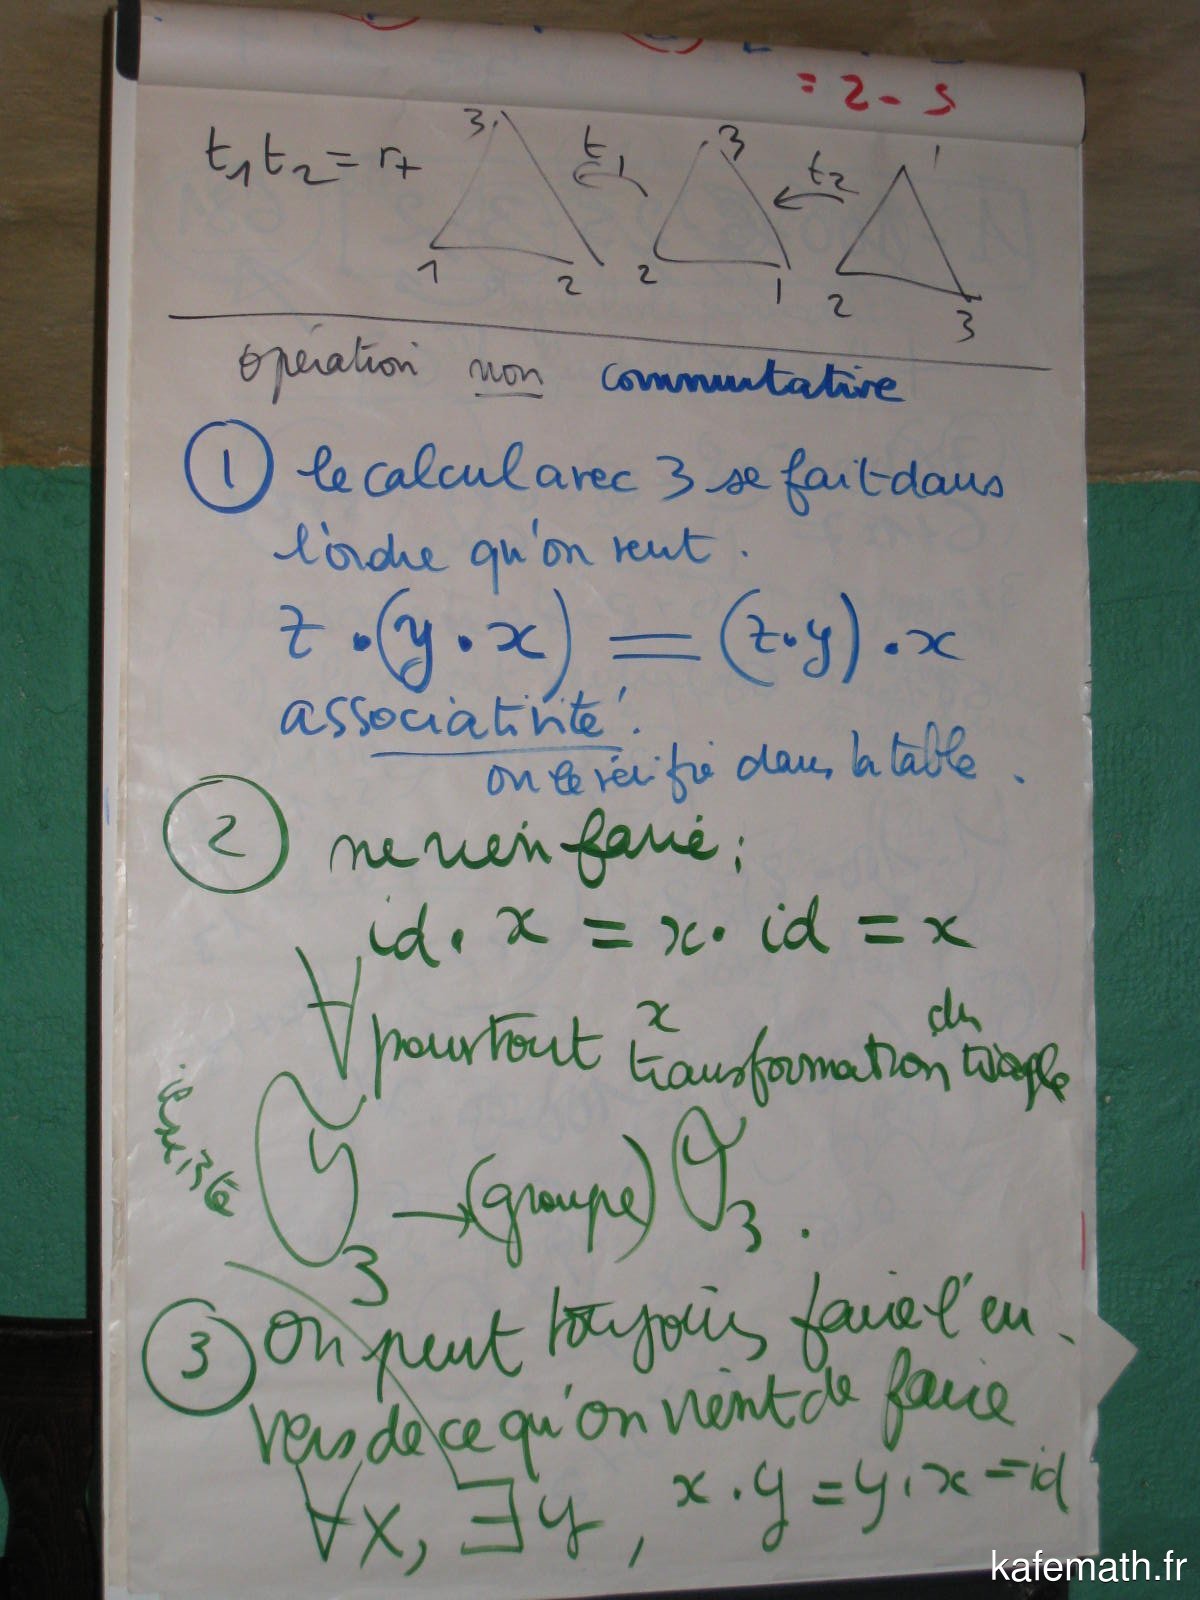 = 2 - 5
t₁t₂ = r₊
3 t₁ 3 t₂ 1
1 2 2 1 2 3
opération non commutative
1 le calcul avec 3 se fait dans
l'ordre qu'on veut.
z • (y • x) = (z • y) • x
associativité.
on le vérifie dans la table.
2 ne rien faire ;
id • x = x • id = x
∀ pour tout x transformation du triangle
il existe
𝒮₃ → (groupe) 𝒮₃.
3 On peut toujours faire l'en-
vers de ce qu'on vient de faire
∀x, ∃y, x • y = y • x = id
kafemath.fr